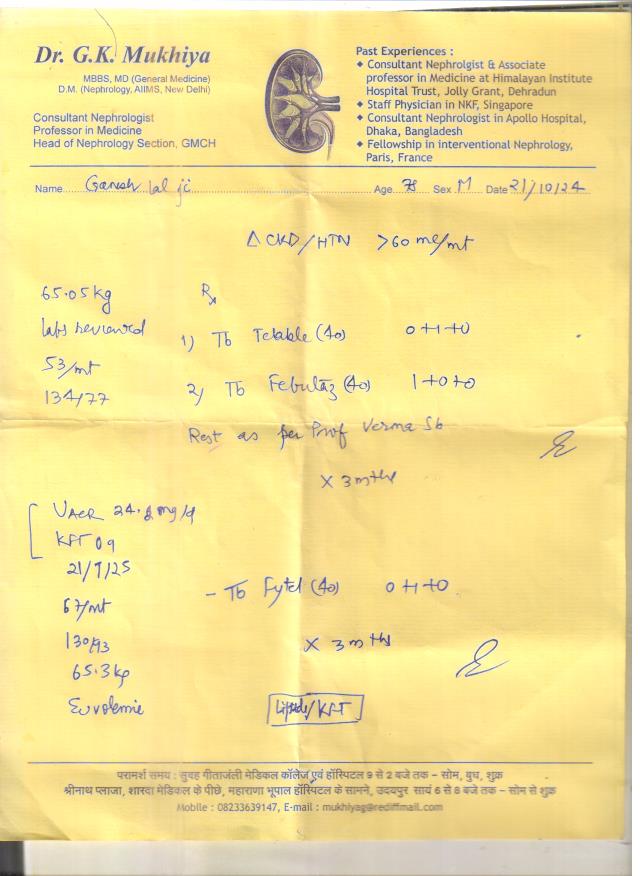 Dr. G.K. Mukhiya
MBBS, MD (General Medicine)
D.M. (Nephrology, AIIMS, New Delhi)
Consultant Nephrologist
Professor in Medicine
Head of Nephrology Section, GMCH
Past Experiences :
◆ Consultant Nephrolgist & Associate
professor in Medicine at Himalayan Institute
Hospital Trust, Jolly Grant, Dehradun
◆ Staff Physician in NKF, Singapore
◆ Consultant Nephrologist in Apollo Hospital,
Dhaka, Bangladesh
◆ Fellowship in interventional Nephrology,
Paris, France
Name Ganesh lal ji Age 78 Sex M Date 21/10/24
Δ CKD/HTN >60 ml/mt
65.05kg
Rx
labs reviewed
1) Tb (40) 0+1+0
53/mt
2) Tb (40) 1+0+0
134/77
Rest as per Prof Verma Sb
x 3 mths
UACR 24. mg/g
KFT
21/ /25
- Tb (40) 0+1+0
67/mt
130/93
x 3 mths
65.3kg
Euvolemic
/KFT
परामर्श समय : सुबह गीतांजली मेडिकल कॉलेज एवं हॉस्पिटल 9 से 2 बजे तक – सोम, बुध, शुक्र
श्रीनाथ प्लाजा, शारदा मेडिकल के पीछे, महाराणा भूपाल हॉस्पिटल के सामने, उदयपुर सायं 6 से 8 बजे तक – सोम से शुक्र
Mobile : 08233639147, E-mail : mukhiyag@rediffmail.com